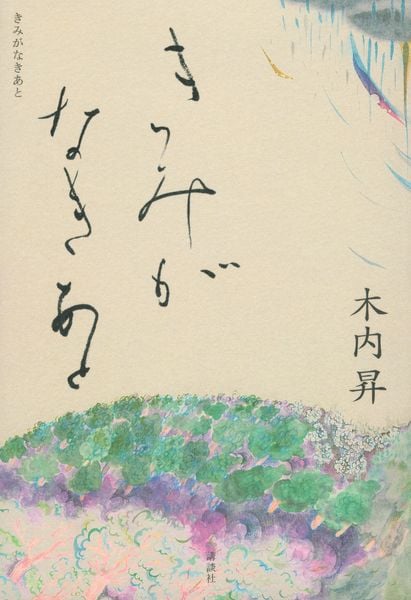 きみが
なきあと
木内昇
きみがなきあと
講談社